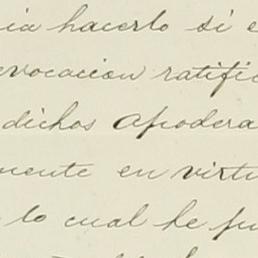 ia hacerlo si e
evocacion ratific
dichos Apodera
mente en virtu
lo cual he fu